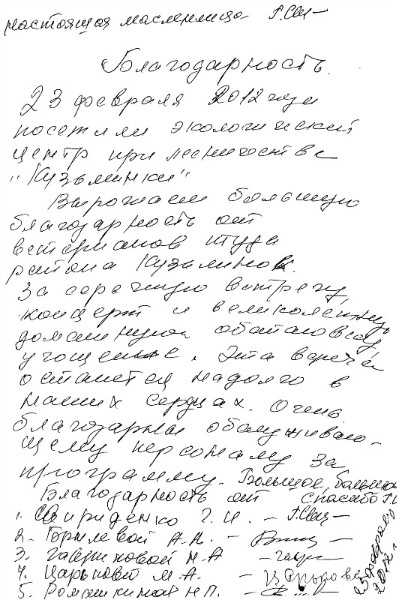 настоящая масленница
Благодарность.
23 февраля 2012 года
посетили экологический
центр при лесничестве
"Кузьминки"
Выражаем большую
благодарность от
ветеранов труда
района Кузьминок.
За сердечную встречу,
концерт и великолепную
домашнюю обстановку,
угощение. Эта встреча
останется надолго в
наших сердцах. Очень
благодарны обслуживаю-
щему персоналу за
программу. Большое, большое
Благодарность от спасибо
1. Свириденко Г.И.
2. Горылевой А.А.
3. Гаериковой М.А
4. Царьковой М.А. –
5. Ромашкиной Н.П. –
23 февраля
2012 г.